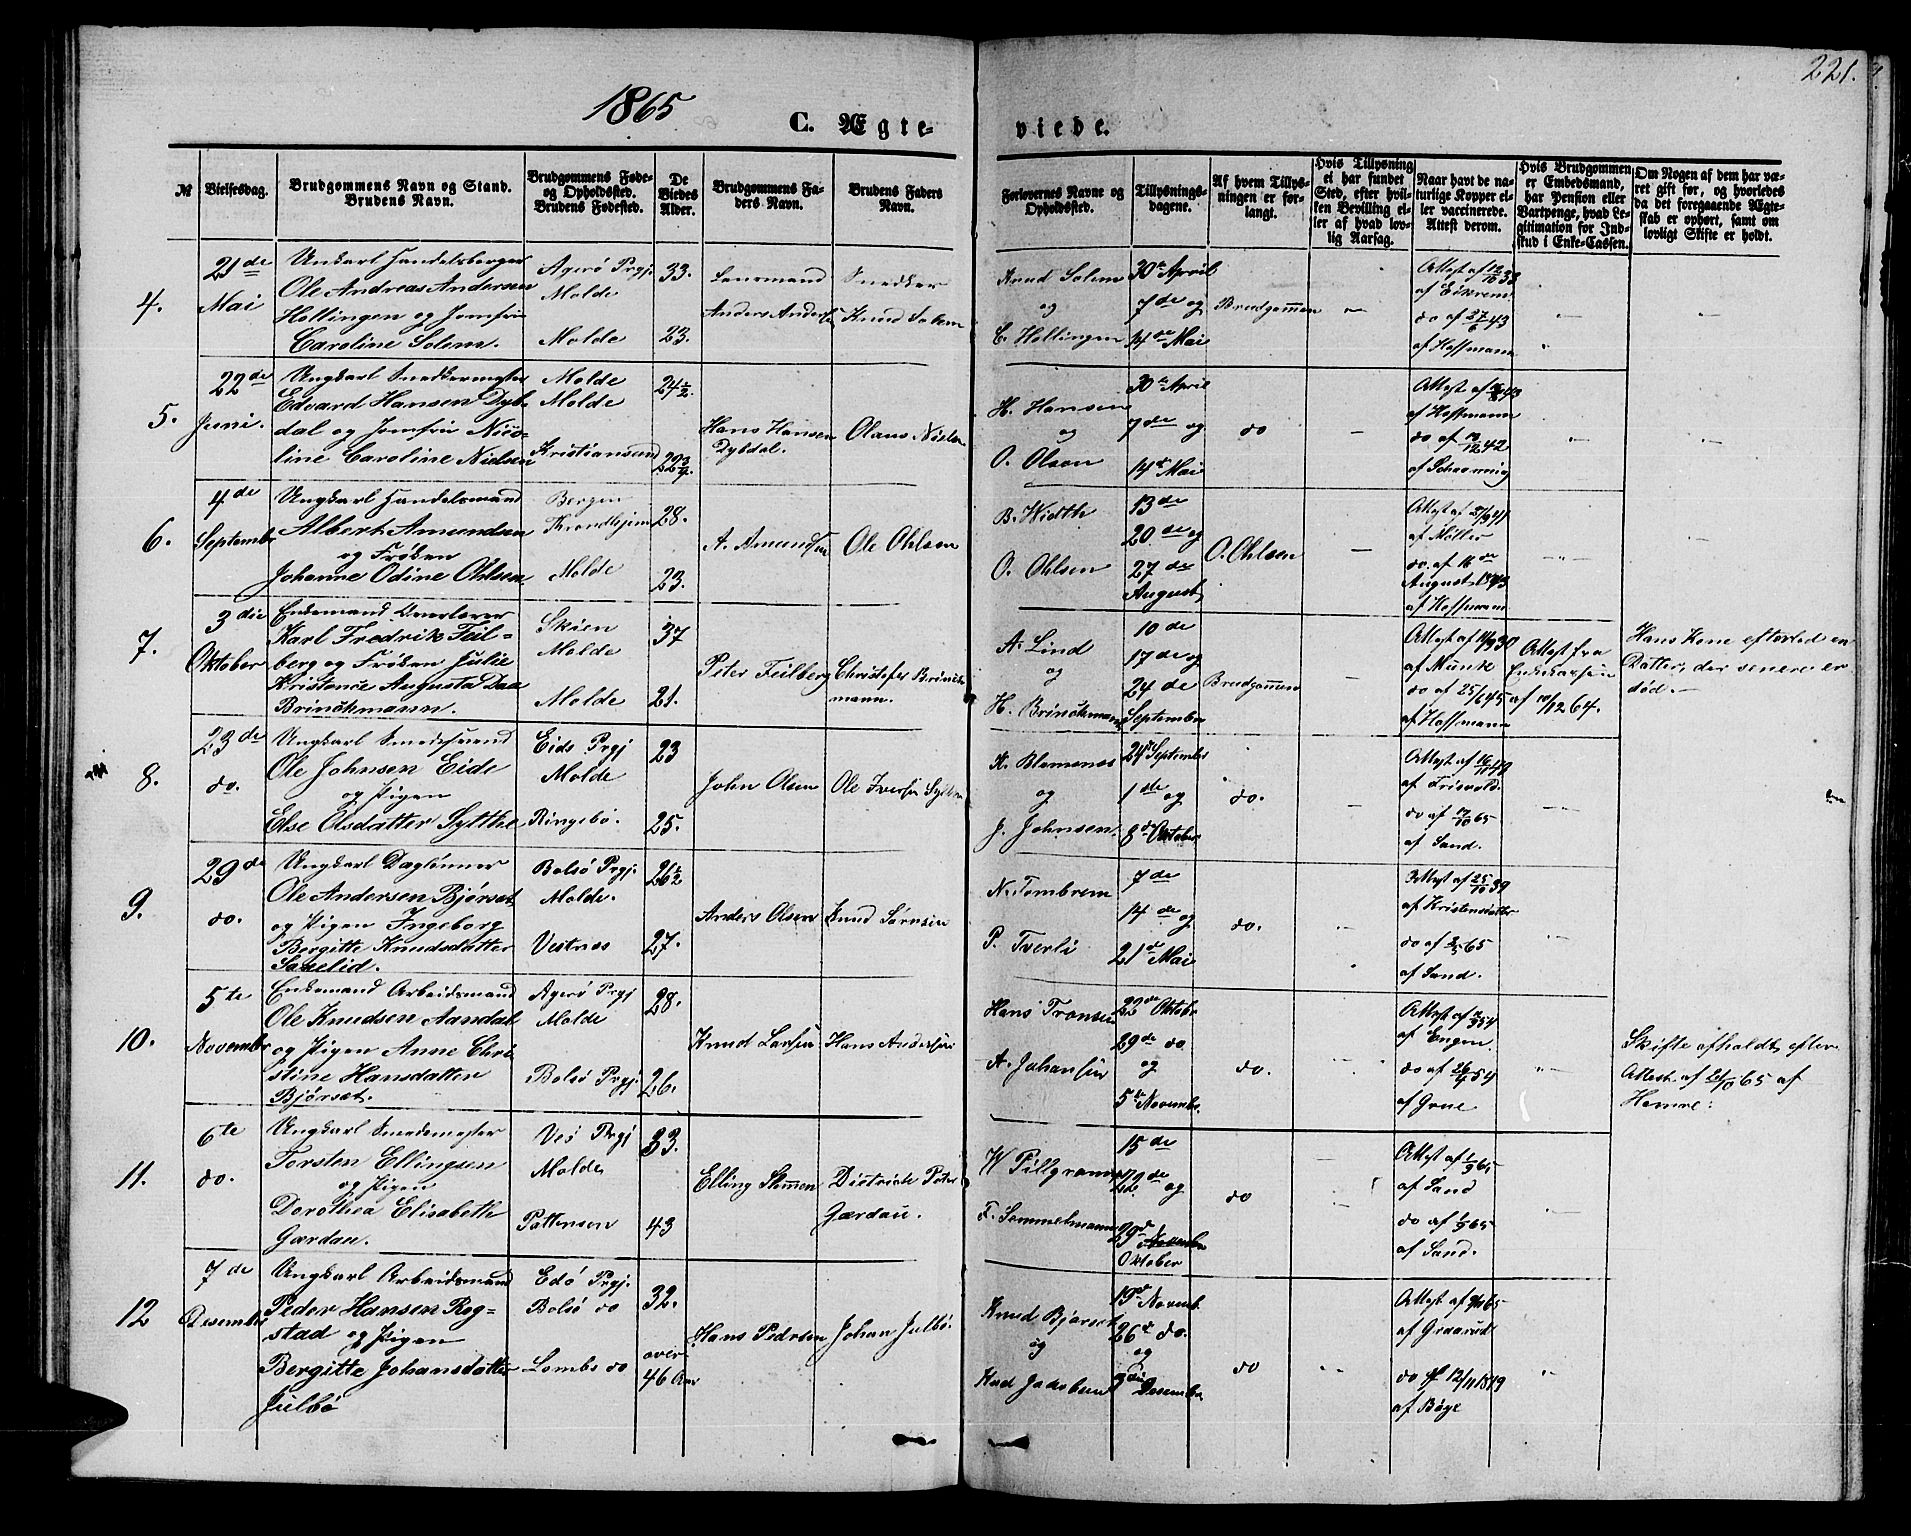 221.
1865
C. Ægte-
viede.
№
Vielsesdag.
Brudgommens Navn og Stand.
Brudens Navn.
Brudgommens Føde-
og Opholdssted.
Brudens Fødested.
De
Viedes
Alder.
Brudgommens Fa-
ders Navn.
Brudens Faders
Navn.
Forlovernes Navne og
Opholdssted.
Tillysnings-
dagene.
Af hvem Tillys-
ningen er for-
langt.
Hvis Tillysning
ei har fundet
Sted, efter hvil-
ken Bevilling el-
ler af hvad lov-
lig Aarsag.
Naar havt de na-
turlige Kopper el-
ler vaccinerede.
Attest derom.
Hvis Brudgommen
er Embedsmand,
har Pension eller
Vartpenge, hvad Le-
gitimation for Ind-
skud i Enke-Cassen.
Om Nogen af dem har væ-
ret gift før, og hvorledes
da det foregaaende Ægte-
skab er ophørt, samt om
lovligt Skifte er holdt.
4.
21de
Mai
Unkarl Handelsborger
Ole Andreas Andersen
Hollingen og Jomfru
Caroline Solem.
Agerø Prgj.
Molde
Molde
33.
23.
Lensmand
Anders Andersen
Snedker
Knud Solem
Knud Solem
og
C. Hollingen
30te April
7de og
14de Mai
Brudgommen
af Eikrem
do af 27/6 43
af Hoffmann
5.
22de
Juni.
Ungkarl Snedkermester
Edvard Hansen Dyb-
dal og Jomfru Nico-
line Caroline Nielsen
Molde
Molde
Kristiansund
24½
22¾.
Hans Hansen
Dybdal.
Olaus Nielsen
H. Hansen
og
O. Olsen
30te April
7de og
14de Mai
do
af Hoffmann
do af 19/12 42
af Schanning
6.
4de
September
Ungkarl Handelsmand
Albert Amundsen
og Frøken
Johanne Odine Ohlsen
Bergen
Throndhjem
Molde
28.
23.
A. Amundsen
Ole Ohlsen
B. Width
O. Ohlsen
13de
20de og
27de
August
O. Ohlsen
af Møller
do. af 16de
August 1843
af Hoffmann
7.
3die
Oktober
Enkemand Overlærer
Karl Fredrik Feil-
berg og Frøken Julie
Kristence Augusta Daa
Brinchmann.
Skien
Molde
Molde
37
21.
Peter Feilberg
Christofer Brinch-
mann.
A. Lind
og
H. Brinchmann
10de
17de og
24de
September
Brudgommen
Attest af 11/9 30
af Munk
do af 25/6 45
af Hoffmann
Attest fra
Enkekassen
af 10/12 64.
Hans Kone efterlod en
Datter, der senere er
død.
8.
23de
do.
Ungkarl Smedsvend
Ole Johnsen Eide
og Pigen
Else Olsdatter Sylthe
Eids Prgj
Molde
Ringebø.
23
25.
John Olsen
Ole Iversen Sylthe
K. Blomenes
og
J. Johnsen
24de September
1de og
8de Oktober
do.
af Frisvold
do af 19/10 65
af Sand.
9.
29de
do.
Ungkarl Daglønner
Ole Andersen Bjørset
og Pigen Ingeborg
Bergitte Knudsdatter
Sanelid.
Bolsø Prgj.
Molde.
Vestnes
26½
27.
Anders Olsen
Knud Sørnsen
N. Tombrem
P. Tverli
7de
14de og
21de Mai
do.
Attest af 25/10 39
af Kristensdatter
af Sand.
10.
5te
November
Enkemand Arbeidsmand
Ole Knudsen Aandal
og Pigen Anne Chri-
stine Hansdatter
Bjørset.
Agerø Prgj
Molde
Bolsø Prgj.
28.
26.
Knud Larsen
Hans Andersen
Hans Tronsen
A. Johansen
22de Oktobr
29de do.
og
5te Novembr.
do.
af Engen.
do af 26/4 54
af Grue
Skifte afholdt efter
Attest af 21/10 65 af
Homre.
11.
6te
do.
Ungkarl Smedemester
Torsten Ellingsen
og Pigen
Dorothea Elisabeth
Gærdau.
Veø Prgj
Molde
Pattensen
33.
43
Elling Simmen
Distrikt Peter
Gærdau.
W Pillgram
F. Semmelmann
15de
22de og
29de Novembr
Oktober
do
af Sand
af Sand.
12
7de
Desember
Ungkarl Arbeidsmand
Peder Hansen Røg-
stad og Pigen
Bergitte Johansdatter
Julbø
Edø Prgj.
Bolsø do
Lombs do
32.
over
46 Aar
Hans Pedersen
Johan Julbø.
Knud Bjørset
og
Knud Jacobsen
19de Novemb.
26de do.
og
3die Desember
do
af Graarud
do af 12/11 1819
af Bøye